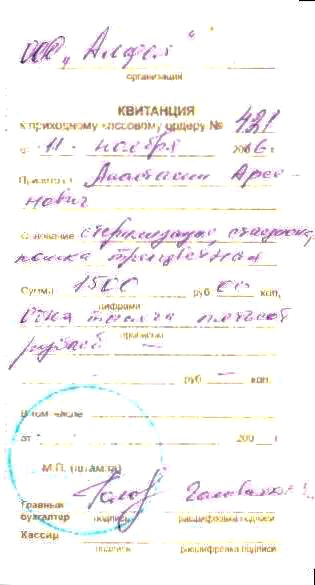 ООО "Алфея"
организация
КВИТАНЦИЯ
к приходному кассовому ордеру № 421
от "11" ноября 2006 г.
Принято от Анастасии Арсе-
нович
Основание стерилизация, стационар,
кошка трехцветная
Сумма 1500 руб. 00 коп.
цифрами
Одна тысяча пятьсот
прописью
рублей —
руб. — коп.
В том числе
от 200 г.
М.П. (штампа)
Главный
бухгалтер подпись расшифровка подписи
Кассир
подпись расшифровка подписи